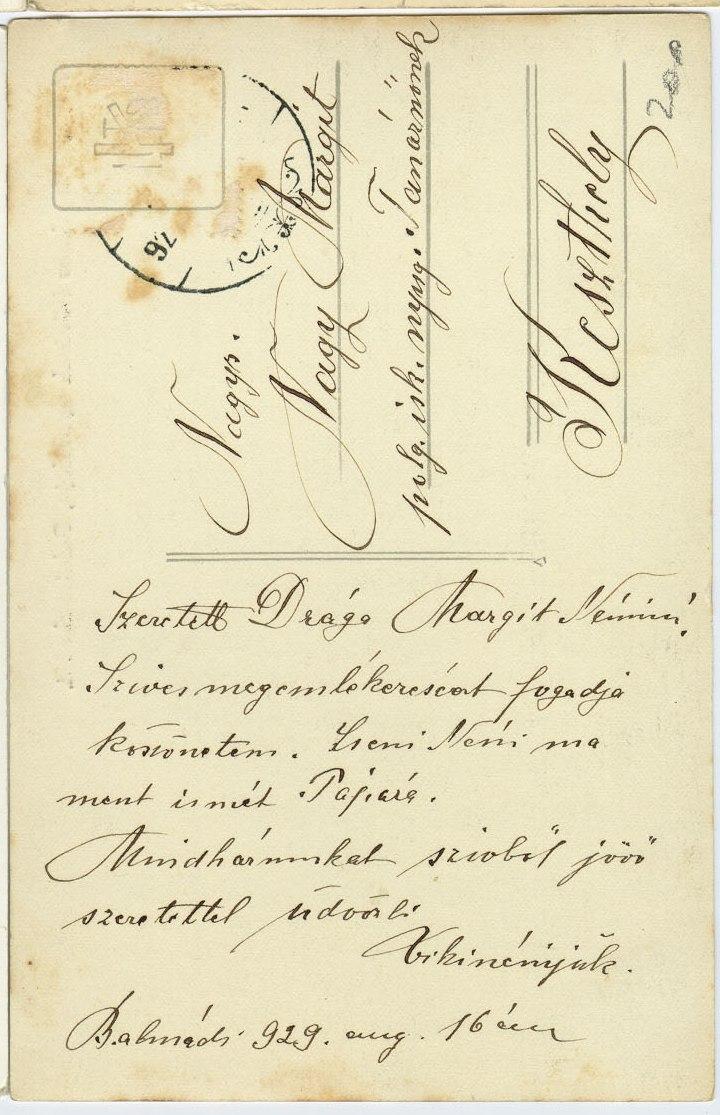 Nagys.
Nagy Margit
polg. isk. nyug. Tanárnőnek
Keszthely
200
Szeretett Drága Margit Néném!
Szives megemlékezéseért fogadja
köszönetem. Zseni Néni ma
ment ismét Pápára.
Mindhármukat szivből jövő
szeretettel üdvözli
Vikinénijük.
Balmádi 929. aug. 16 án